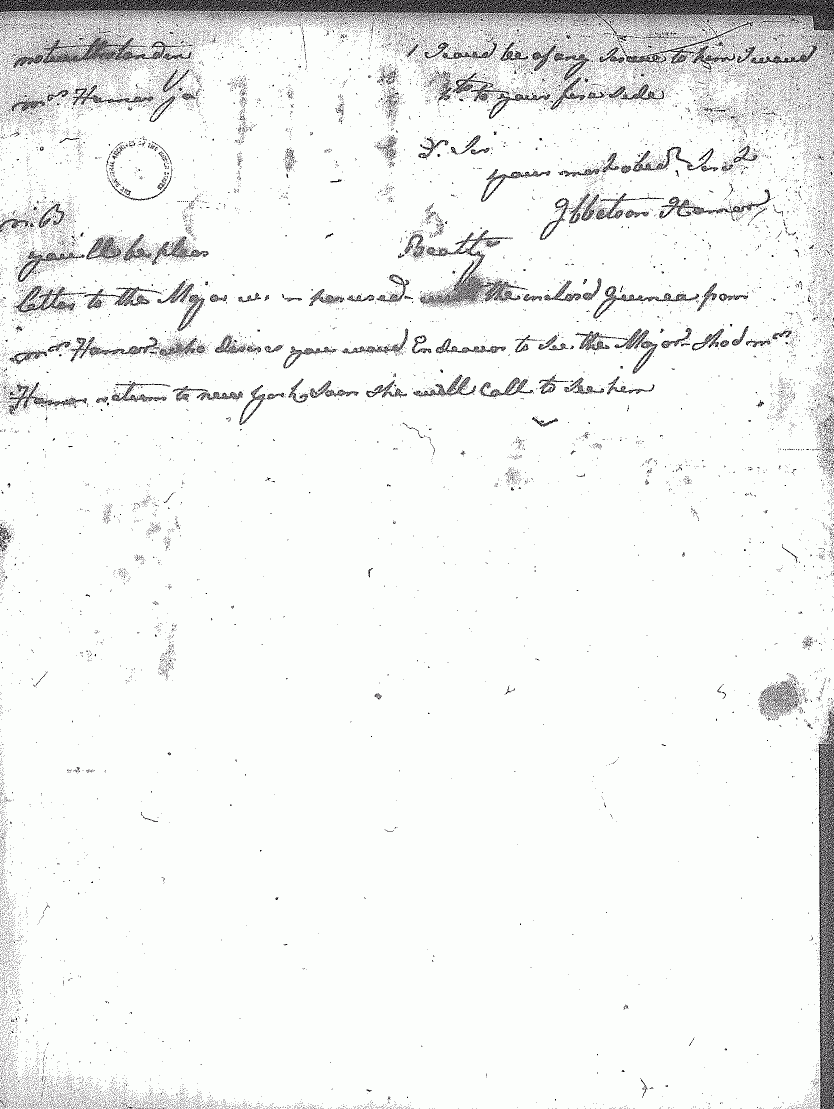 notwithstandin I coud be of any Service to him I woud
Mrs Hamer jo to your fire side
Dr. Sir
your most obedt. Servt
Ibbetson Hamer
N.B
you'll be pleas Beatty
letter to the Major perused the inclos'd Guinea from
Mrs. Hamer who desires you woud Endeavor to see the Major. Shod Mrs
Hamer return to new york Soon she will Call to see him